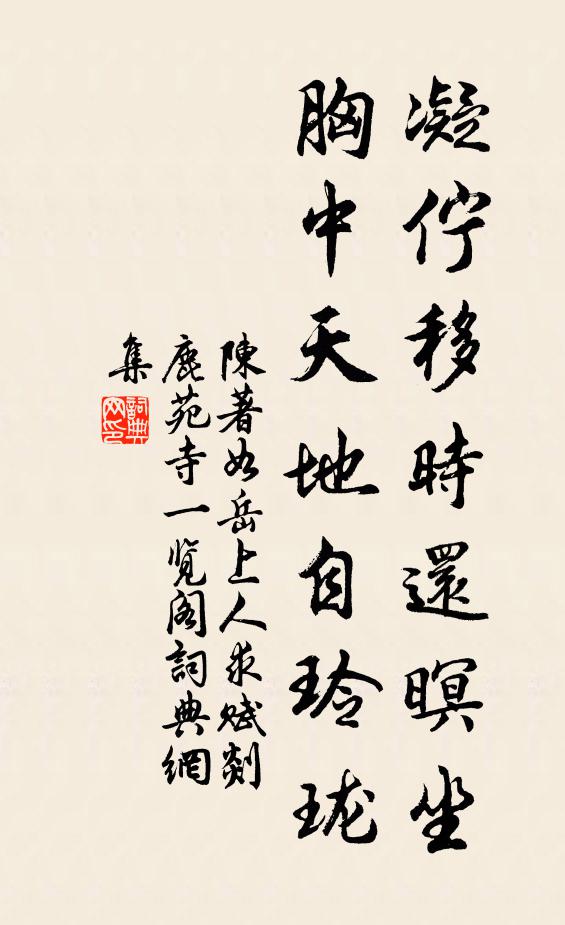 凝佇移時還暝坐
胸中天地自玲珑
陳著如岳上人求赋剡
鹿苑寺一览阁詞典網
集
詞典网印